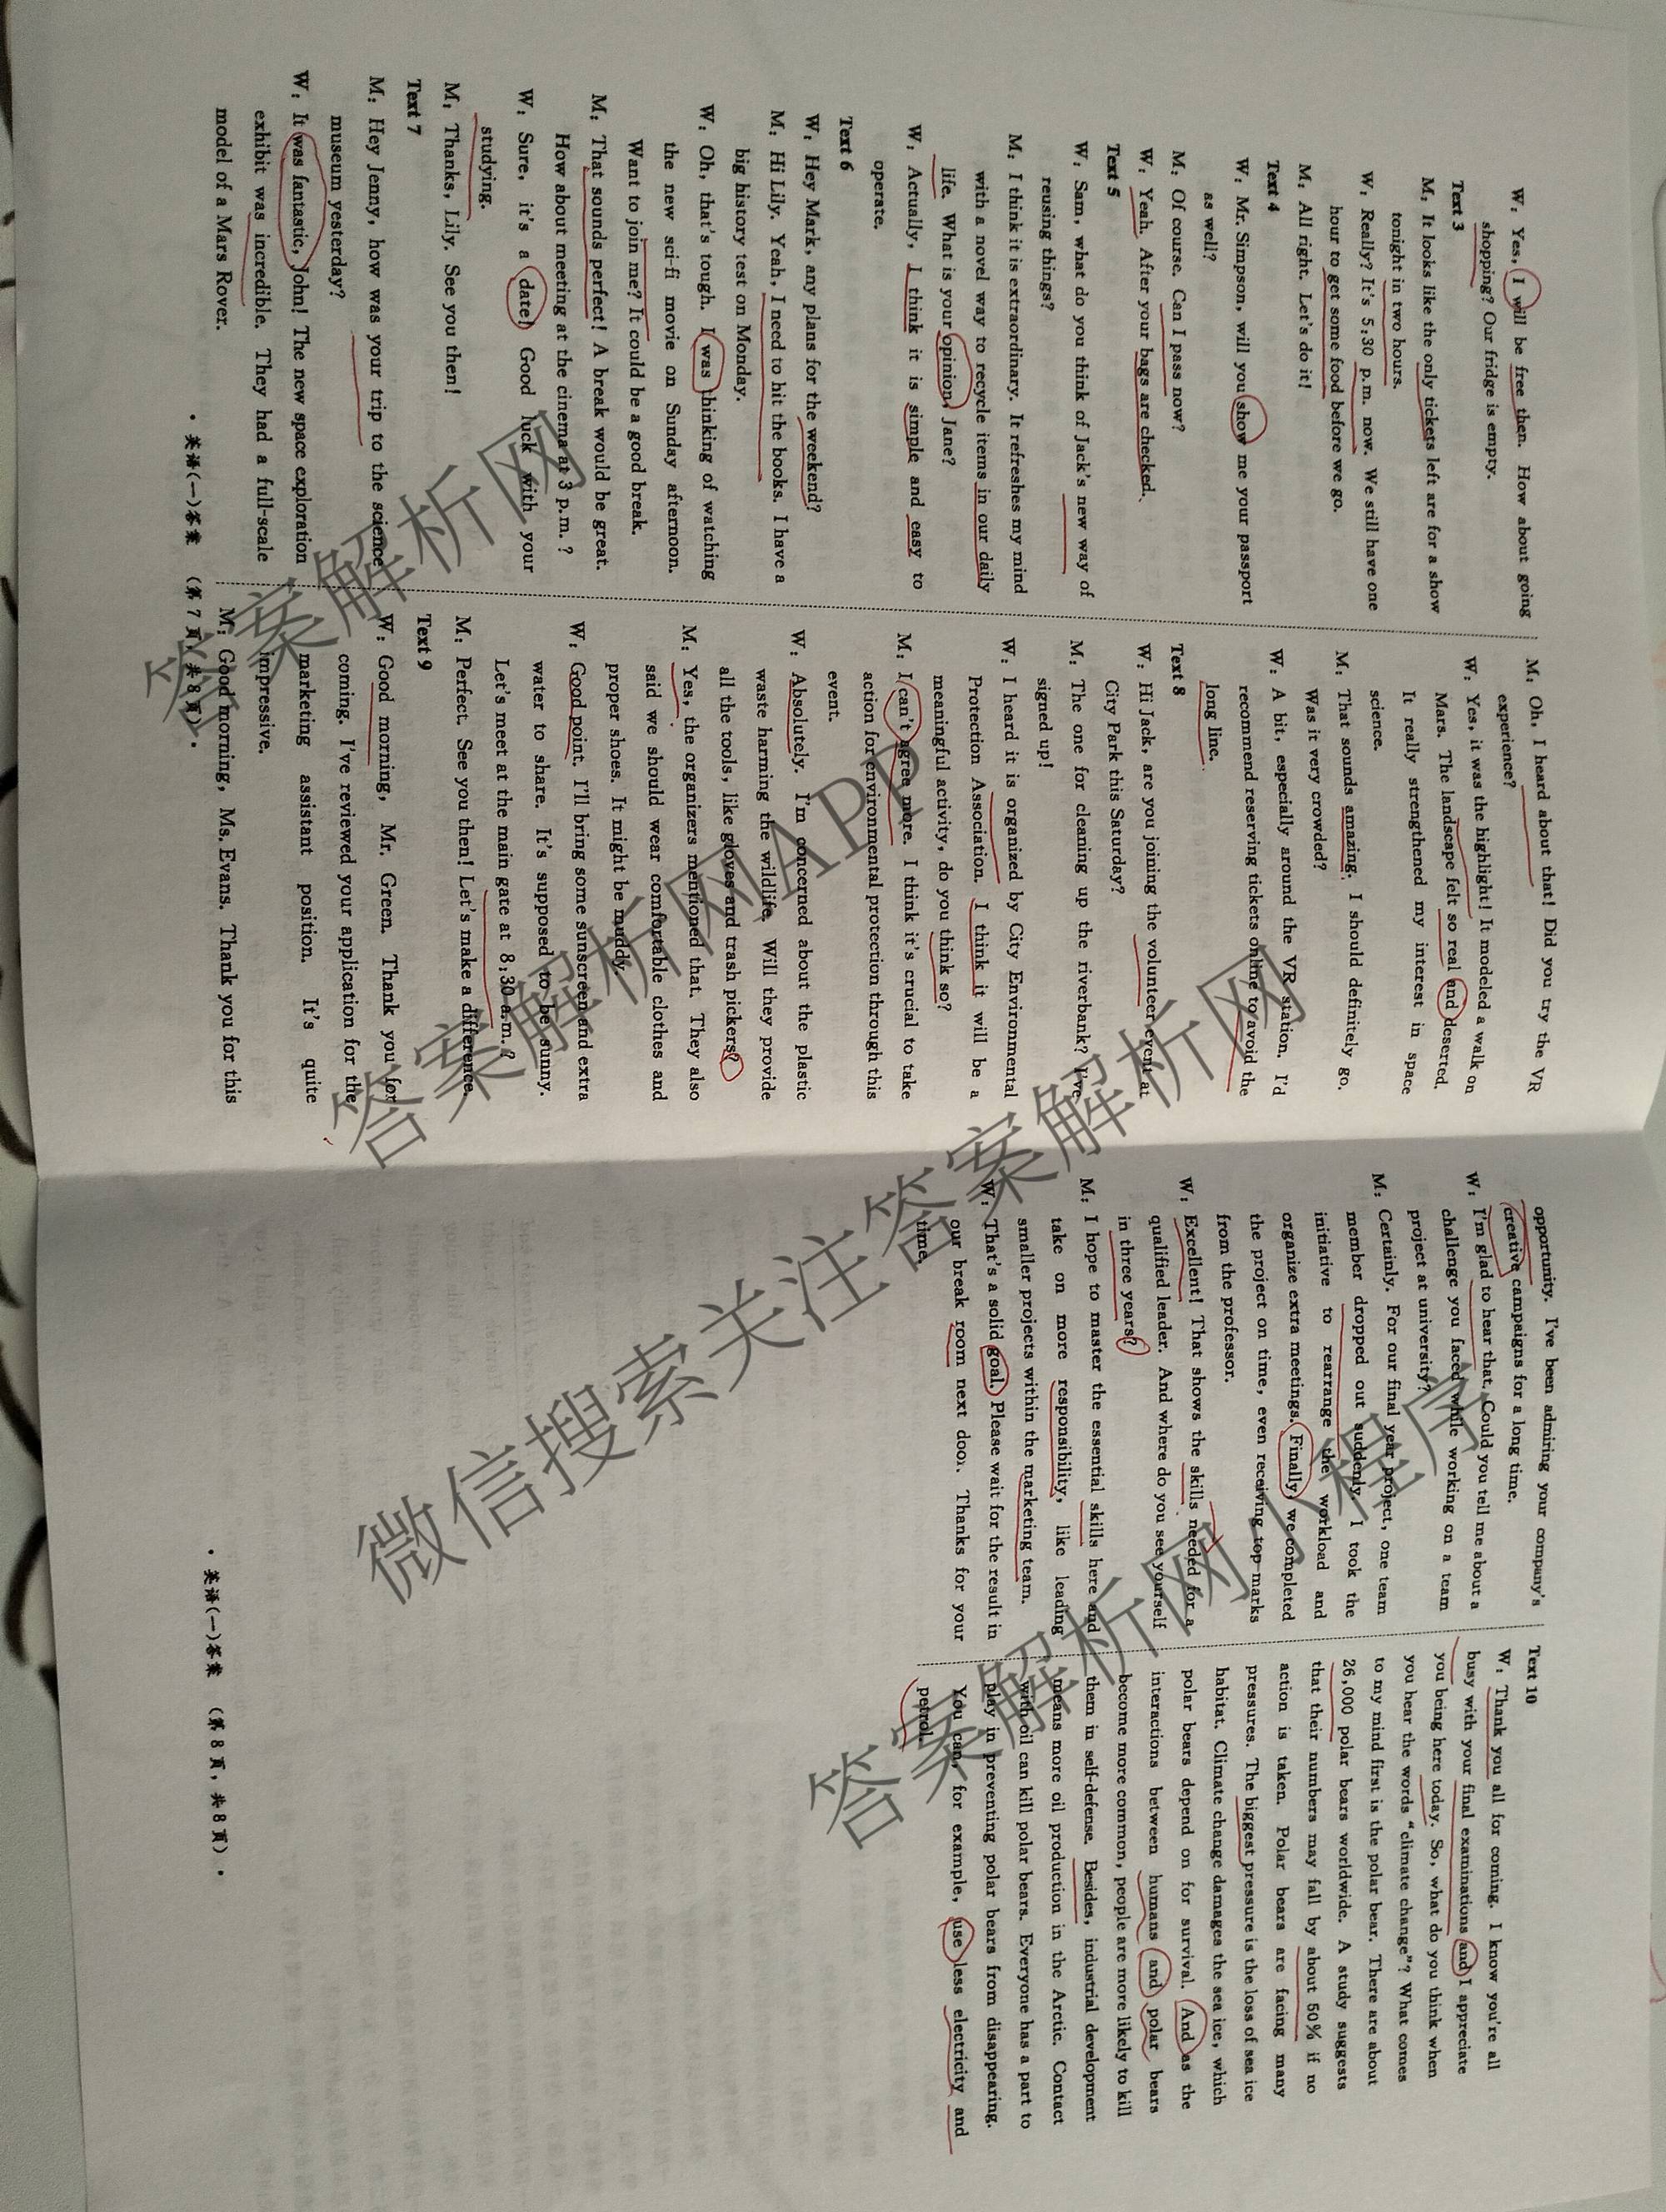 W: Yes, I will be free then. How about going
shopping? Our fridge is empty.
Text 3
M: It looks like the only tickets left are for a show
tonight in two hours.
W: Really? It's 5:30 p.m. now. We still have one
hour to get some food before we go.
M: All right. Let's do it!
Text 4
W: Mr. Simpson, will you show me your passport
as well?
M: Of course. Can I pass now?
W: Yeah. After your bags are checked.
Text 5
W: Sam, what do you think of Jack's new way of
reusing things?
M: I think it is extraordinary. It refreshes my mind
with a novel way to recycle items in our daily
life. What is your opinion, Jane?
W: Actually, I think it is simple and easy to
operate.
Text 6
W: Hey Mark, any plans for the weekend?
M: Hi Lily. Yeah, I need to hit the books. I have a
big history test on Monday.
W: Oh, that's tough. I was thinking of watching
the new sci-fi movie on Sunday afternoon.
Want to join me? It could be a good break.
M: That sounds perfect! A break would be great.
How about meeting at the cinema at 3 p.m.?
W: Sure, it's a date! Good luck with your
studying.
M: Thanks, Lily. See you then!
Text 7
M: Hey Jenny, how was your trip to the science
museum yesterday?
W: It was fantastic, John! The new space exploration
exhibit was incredible. They had a full-scale
model of a Mars Rover.
• 英语(一)答案 (第 7 页,共 8 页) •
M: Oh, I heard about that! Did you try the VR
experience?
W: Yes, it was the highlight! It modeled a walk on
Mars. The landscape felt so real and deserted.
It really strengthened my interest in space
science.
M: That sounds amazing. I should definitely go.
Was it very crowded?
W: A bit, especially around the VR station. I'd
recommend reserving tickets online to avoid the
long line.
Text 8
W: Hi Jack, are you joining the volunteer event at
City Park this Saturday?
M: The one for cleaning up the riverbank? I've
signed up!
W: I heard it is organized by City Environmental
Protection Association. I think it will be a
meaningful activity, do you think so?
M: I can't agree more. I think it's crucial to take
action for environmental protection through this
event.
W: Absolutely. I'm concerned about the plastic
waste harming the wildlife. Will they provide
all the tools, like gloves and trash pickers?
M: Yes, the organizers mentioned that. They also
said we should wear comfortable clothes and
proper shoes. It might be muddy.
W: Good point. I'll bring some sunscreen and extra
water to share. It's supposed to be sunny.
Let's meet at the main gate at 8:30 a.m.?
M: Perfect. See you then! Let's make a difference.
Text 9
W: Good morning, Mr. Green. Thank you for
coming. I've reviewed your application for the
marketing assistant position. It's quite
impressive.
M: Good morning, Ms. Evans. Thank you for this
opportunity. I've been admiring your company's
creative campaigns for a long time.
W: I'm glad to hear that. Could you tell me about a
challenge you faced while working on a team
project at university?
M: Certainly. For our final year project, one team
member dropped out suddenly. I took the
initiative to rearrange the workload and
organize extra meetings. Finally, we completed
the project on time, even receiving top marks
from the professor.
W: Excellent! That shows the skills needed for a
qualified leader. And where do you see yourself
in three years?
M: I hope to master the essential skills here and
take on more responsibility, like leading
smaller projects within the marketing team.
W: That's a solid goal. Please wait for the result in
our break room next door. Thanks for your
time.
• 英语(一)答案 (第 8 页,共 8 页) •
Text 10
W: Thank you all for coming. I know you're all
busy with your final examinations and I appreciate
you being here today. So, what do you think when
you hear the words "climate change"? What comes
to my mind first is the polar bear. There are about
26,000 polar bears worldwide. A study suggests
that their numbers may fall by about 50% if no
action is taken. Polar bears are facing many
pressures. The biggest pressure is the loss of sea ice
habitat. Climate change damages the sea ice, which
polar bears depend on for survival. And as the
interactions between humans and polar bears
become more common, people are more likely to kill
them in self-defense. Besides, industrial development
means more oil production in the Arctic. Contact
with oil can kill polar bears. Everyone has a part to
play in preventing polar bears from disappearing.
You can, for example, use less electricity and
petrol.
答案解析网
答案解析网APP
微信搜索关注答案解析网
答案解析网小程序